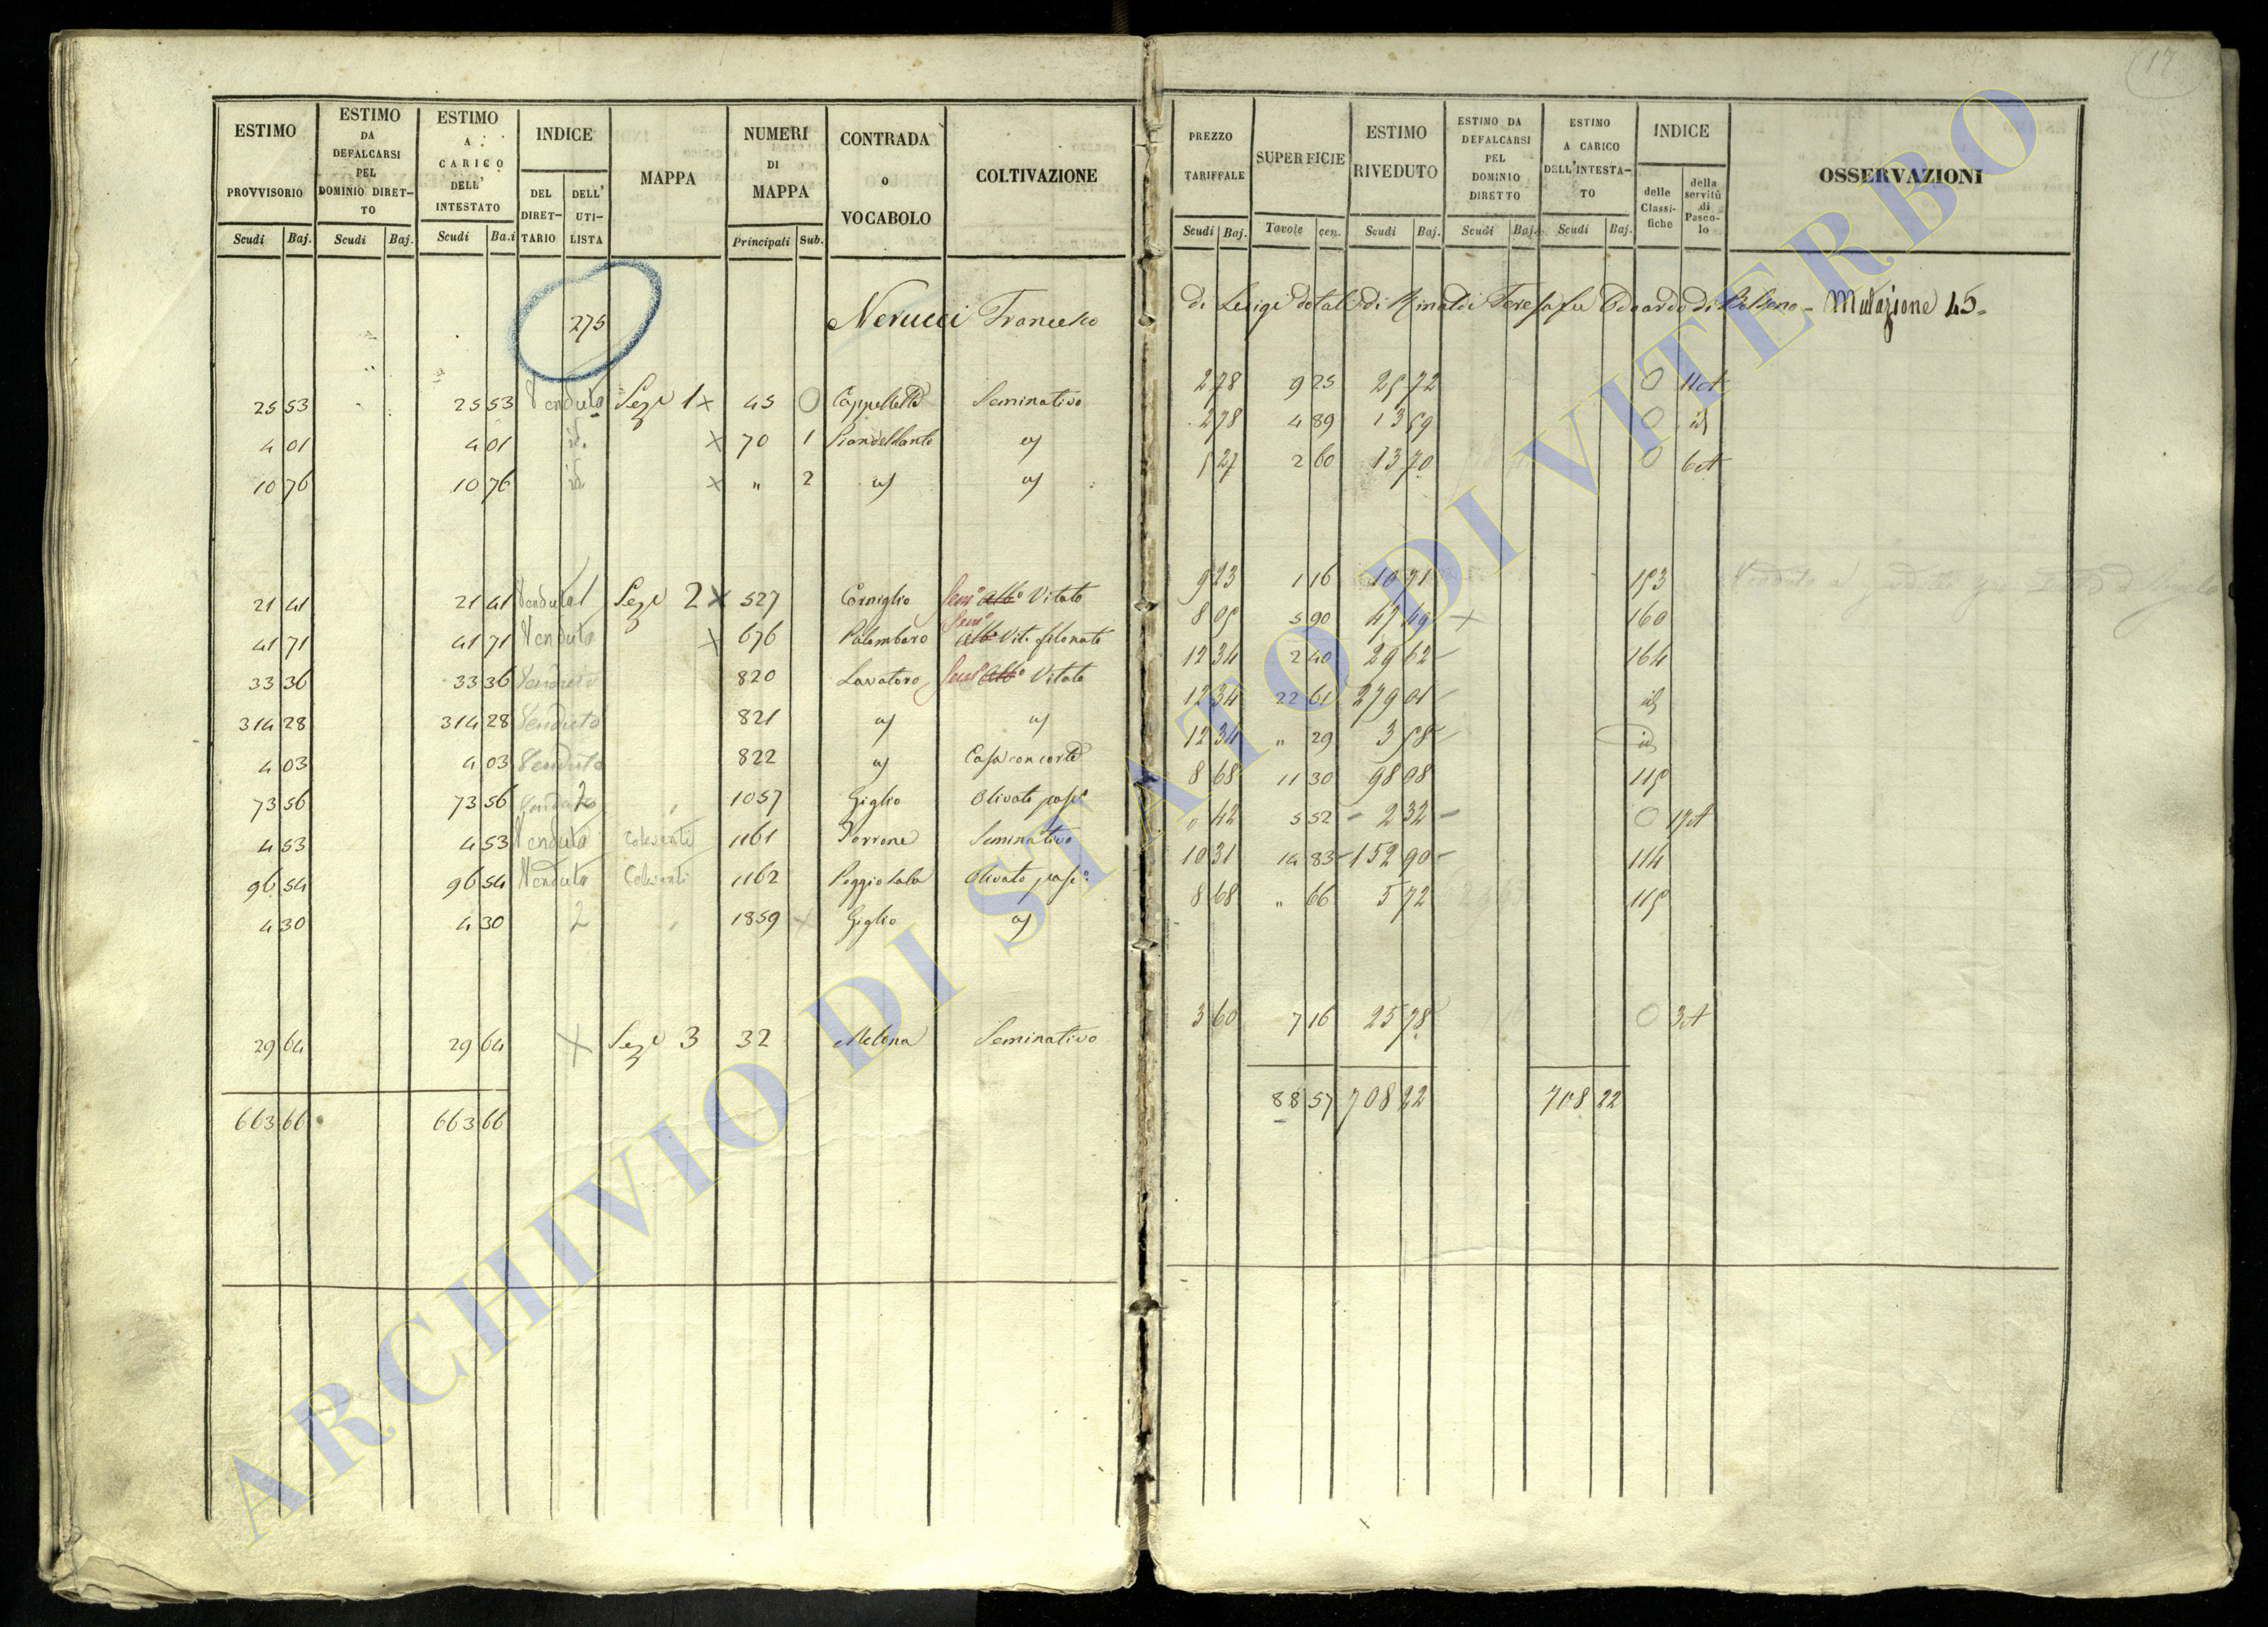 17
ESTIMO PROVVISORIO Scudi Baj.
ESTIMO DA DEFALCARSI PEL DOMINIO DIRET-TO Scudi Baj.
ESTIMO A CARICO DELL' INTESTATO Scudi Ba.i
INDICE DEL DIRET-TARIO DELL' UTI-LISTA
MAPPA
NUMERI DI MAPPA Principali Sub.
CONTRADA o VOCABOLO
COLTIVAZIONE
PREZZO TARIFFALE Scudi Baj.
SUPERFICIE Tavole cen.
ESTIMO RIVEDUTO Scudi Baj.
ESTIMO DA DEFALCARSI PEL DOMINIO DIRETTO Scudi Baj.
ESTIMO A CARICO DELL'INTESTA-TO Scudi Baj.
INDICE delle Classi-fiche della servitù di Pasco-lo
OSSERVAZIONI
275 Nerucci Francesco di Luigi dotali di Rinaldi Teresa fu Odoardo di Bolseno - Mutazione 45.
25 53 25 53 Venduto Sez.e 1 x 45 O Cappelletta Seminativo 2 78 9 25 25 72 O 11 A
4 01 4 01 id. x 70 1 2 78 4 89 13 59 O id
10 76 10 76 id. x " 2 5 27 2 60 13 70 O 6 A
21 41 21 41 Venduto 1 Sez.e 2 x 527 Corniglio Sem.o Alb.o Vitato 9 23 1 16 10 71 153
41 71 41 71 Venduto x 676 Palombaro Sem.o Alb.o Vit. filonato 8 05 5 90 47 49 x 160
33 36 33 36 Venduto 820 Lavatoro Sem.o Alb.o Vitato 12 34 2 40 29 62 164
314 28 314 28 Venduto 821 12 34 22 61 279 01 id
4 03 4 03 Venduto 822 Casa con corte 12 34 " 29 3 58 id
73 56 73 56 Venduto 2 1057 Giglio Olivato pasc.o 8 68 11 30 98 08 115
4 53 4 53 Venduto 1161 Seminativo " 42 5 52 2 32 O 17 A
96 54 96 54 Venduto 1162 Poggio Sala Olivato pasc.o 10 31 14 83 152 90 114
4 30 4 30 2 1859 x Giglio 8 68 " 66 5 72 115
29 64 29 64 x Sez.e 3 32 Melona Seminativo 3 60 7 16 25 78 O 3 A
663 66 663 66 88 57 708 22 708 22
ARCHIVIO DI STATO DI VITERBO